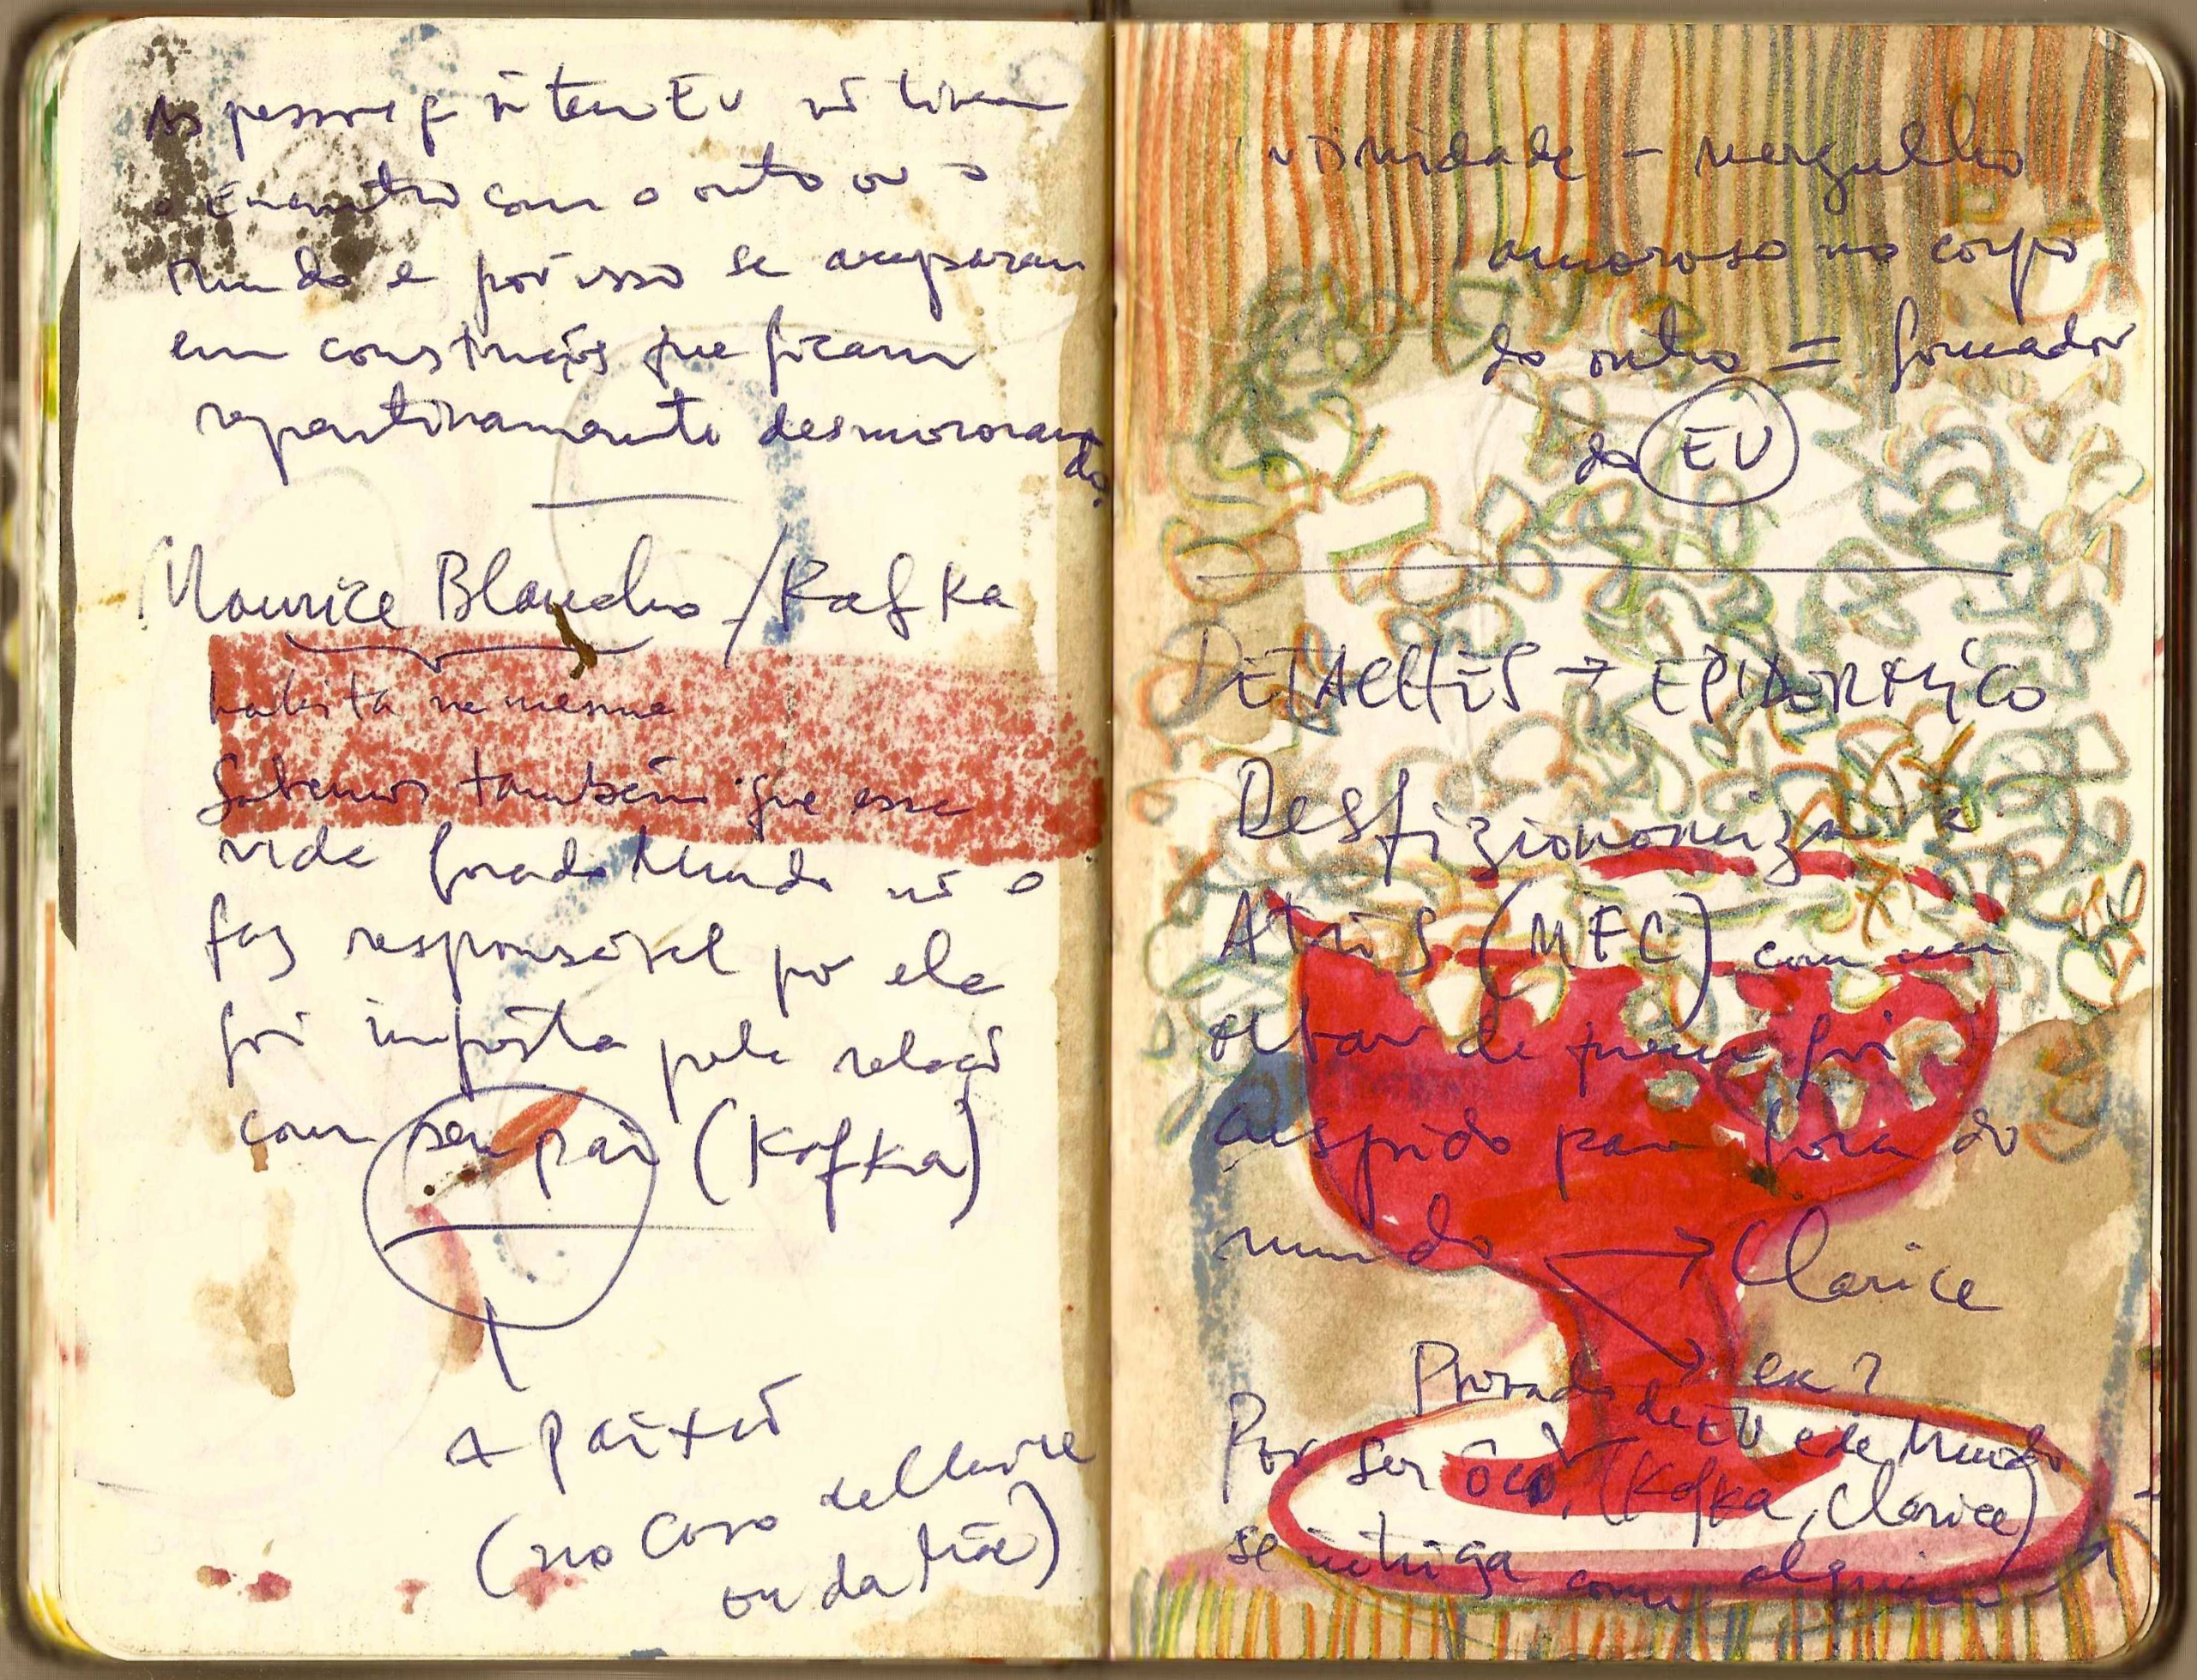 As pessoas q ñ tem EU ñ tiveram
o Encontro com o outro ou o
mundo e por isso se amparam
em construções que ficam
repentinamente desmoronan
do.
Maurice Blancho / Kafka
habita na mesma
Sabemos também que essa
vida fora do Mundo ñ o
faz responsável por ela
foi imposta pela relação
com seu pai (Kafka)
A Paixão
(no caso de Clarice
ou da Mãe)
mergulho
amoroso no corpo
do outro = formador
do EU
DETALHES → EPIDÉRMICO
Desfizionomiza a
Atriz (MFC) com um
olhar de quem foi
cuspido para fora do
mundo → Clarice
eu?
Privado de EU e de Mundo
Por ser ôco, (Kafka, Clarice)
se intriga com alguém